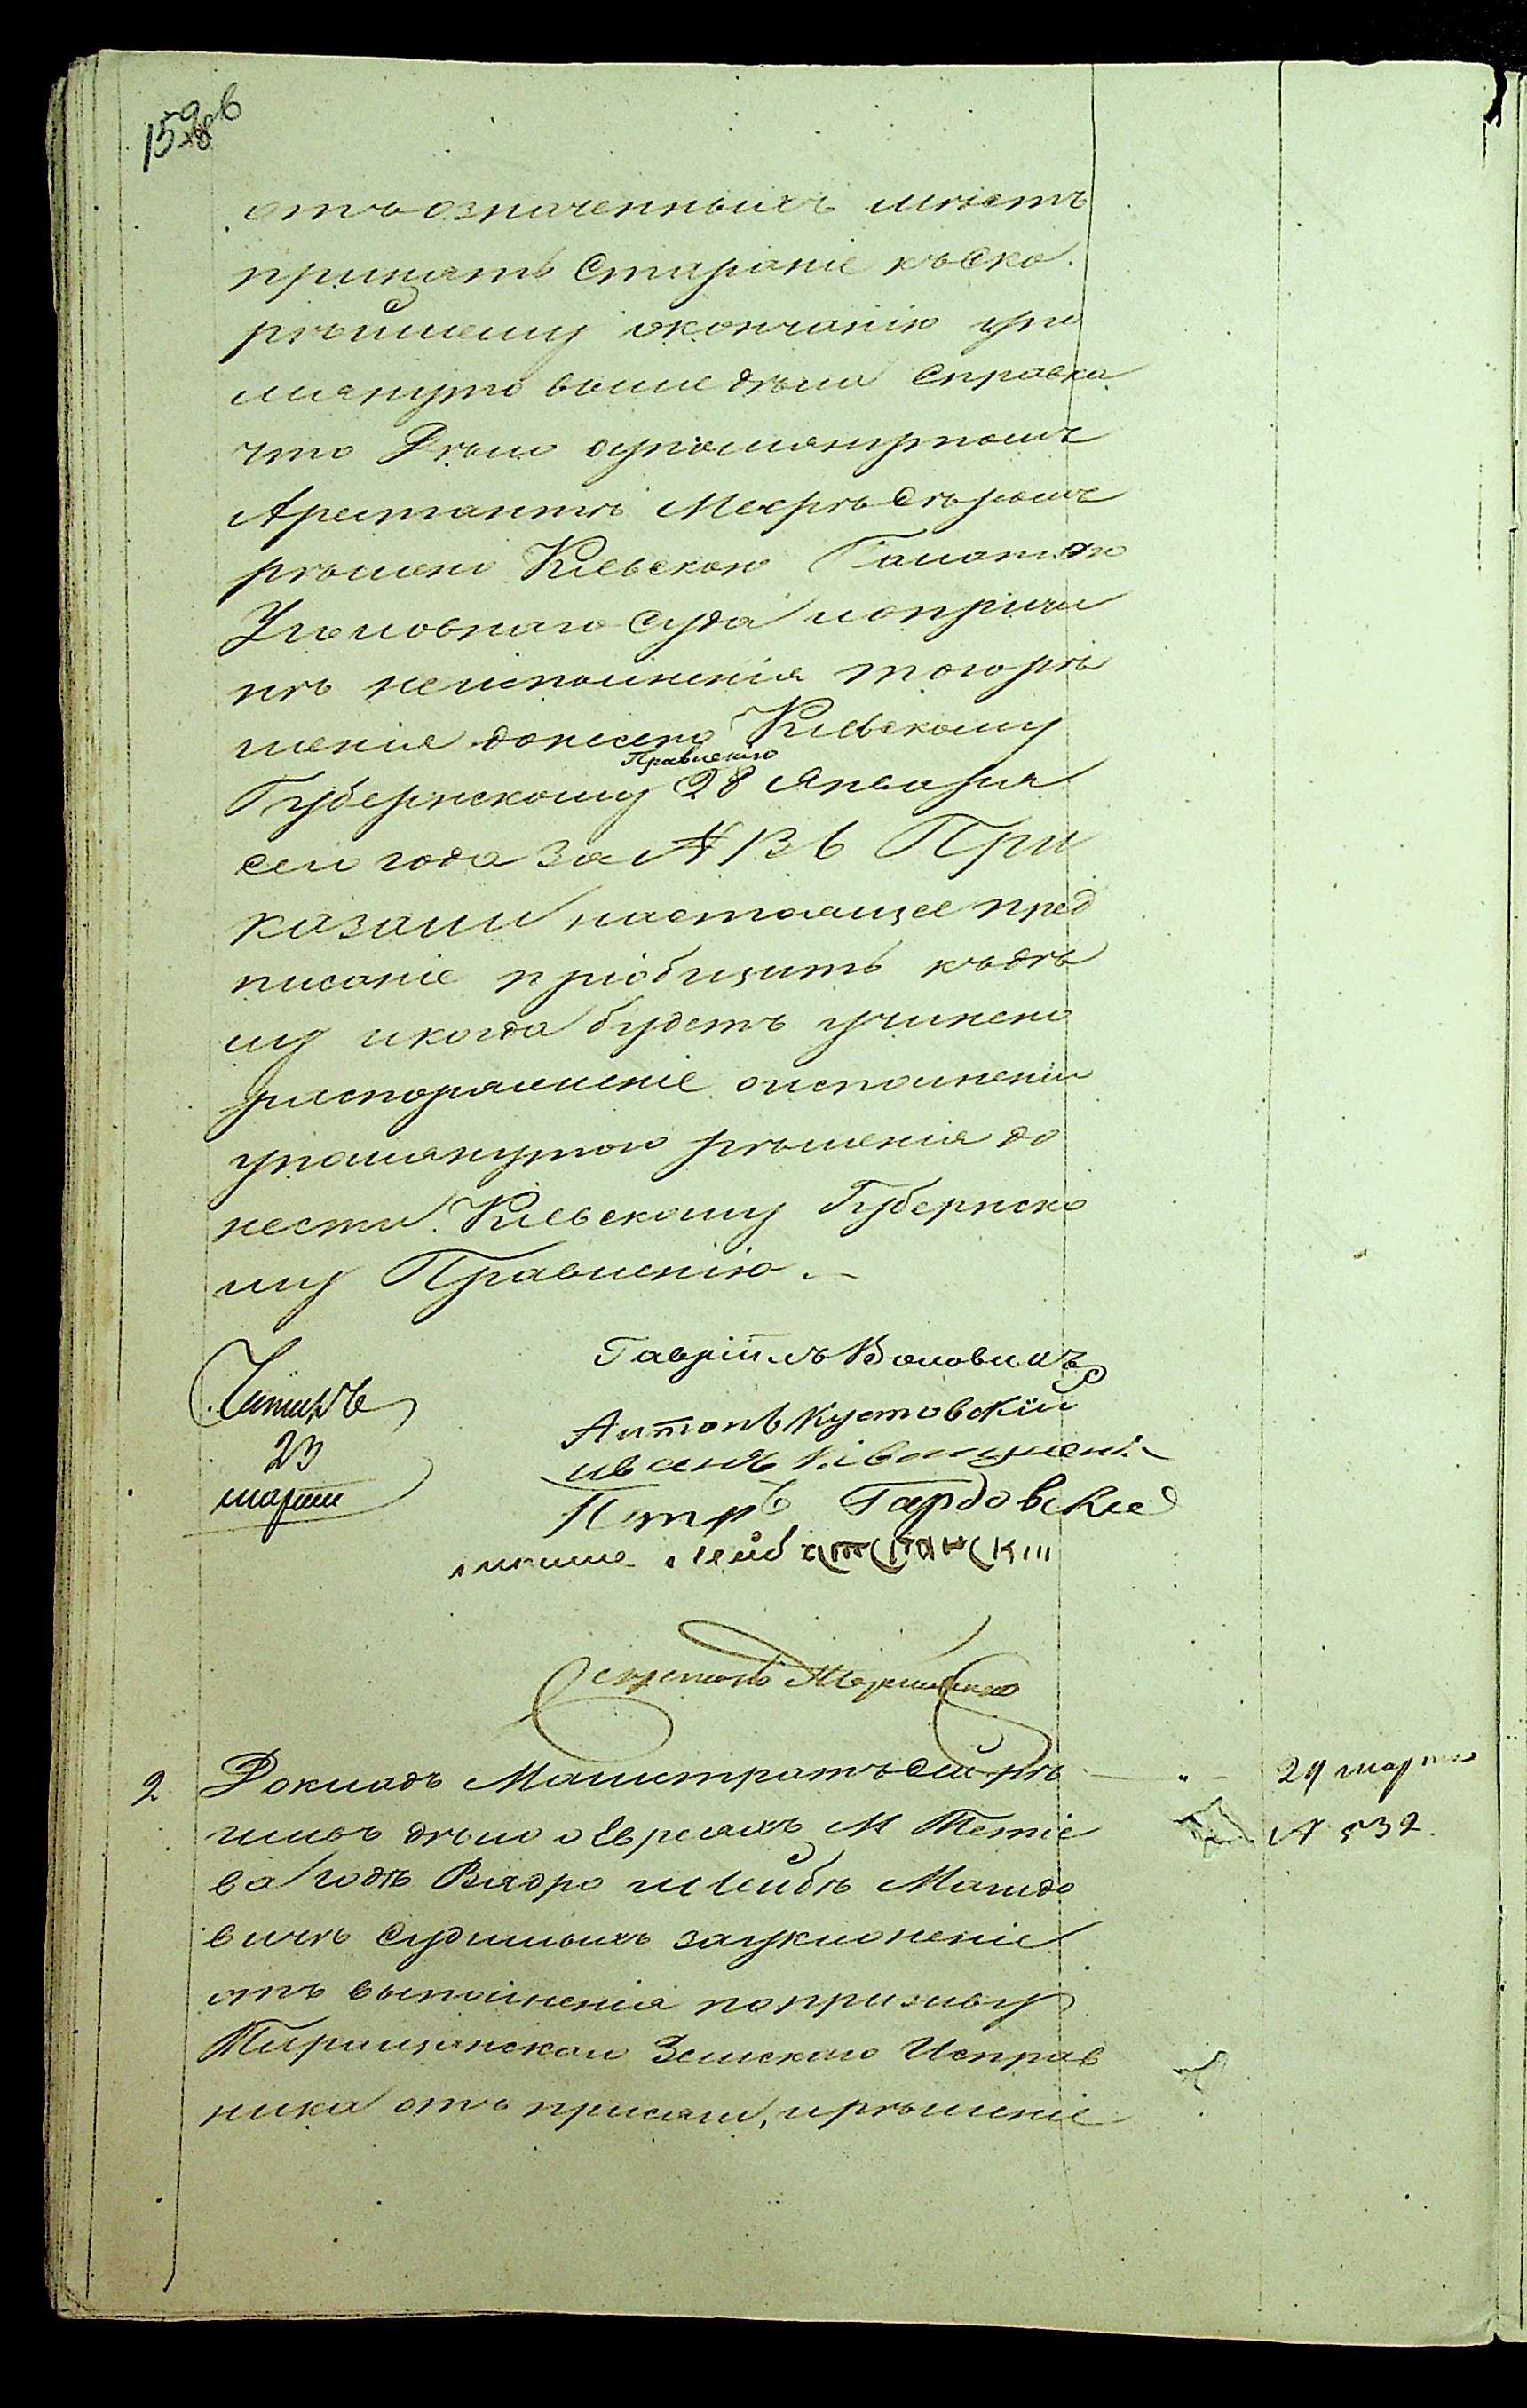 159 в
отъ означенныхъ мѣстъ
принять стараніе къ ско
рѣйшему окончанію упо
мянуто выше дѣла Справка
что Дѣло о упомянутомъ
Арестантѣ Меерѣ Сѣромъ
рѣшено Кіевскою Палатою
Уголовнаго Суда и о причи
нѣ неисполненія того рѣ
шенія донесено Кіевскому
Правленію
Губернскому 28 Января
сего года за № 136 При
казали настоящее пред
писаніе пріобщить къ дѣ
лу и когда будетъ учинено
распоряженіе о исполненіи
упомянутого рѣшенія до
нести Кіевскому Губернско
му Правленію.
23
марта
Гавріилъ
Антонъ Кустовскій
Иванъ
Петръ Гардовскій
Секретарь
2 Докладъ Магистратъ сей рѣ
29 марта
шивъ дѣло о Евреяхъ М
№ 532.
Вядро и Лейбѣ Маидо
вичѣ судимыхъ за уклоненіе
отъ выполненія по призыву
Таращанскаго Земскаго Исправ
ника отъ присяги, и рѣшеніе